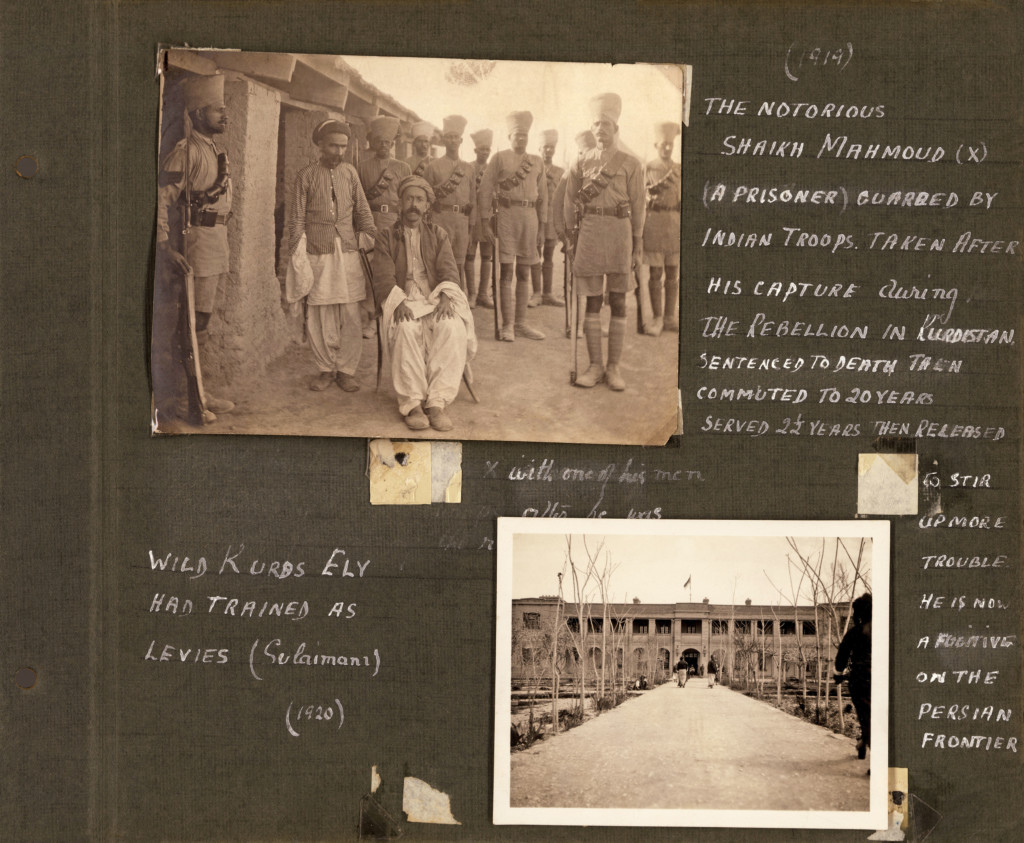 (1919)
THE NOTORIOUS
SHAIKH MAHMOUD (X)
(A PRISONER) GUARDED BY
INDIAN TROOPS. TAKEN AFTER
HIS CAPTURE during
THE REBELLION IN KURDISTAN.
SENTENCED TO DEATH THEN
COMMUTED TO 20 YEARS
SERVED 2½ YEARS THEN RELEASED
X with one of his men
after he was
TO STIR
UP MORE
TROUBLE.
HE IS NOW
A FUGITIVE
ON THE
PERSIAN
FRONTIER
WILD KURDS ELY
HAD TRAINED AS
LEVIES (Sulaimani)
(1920)